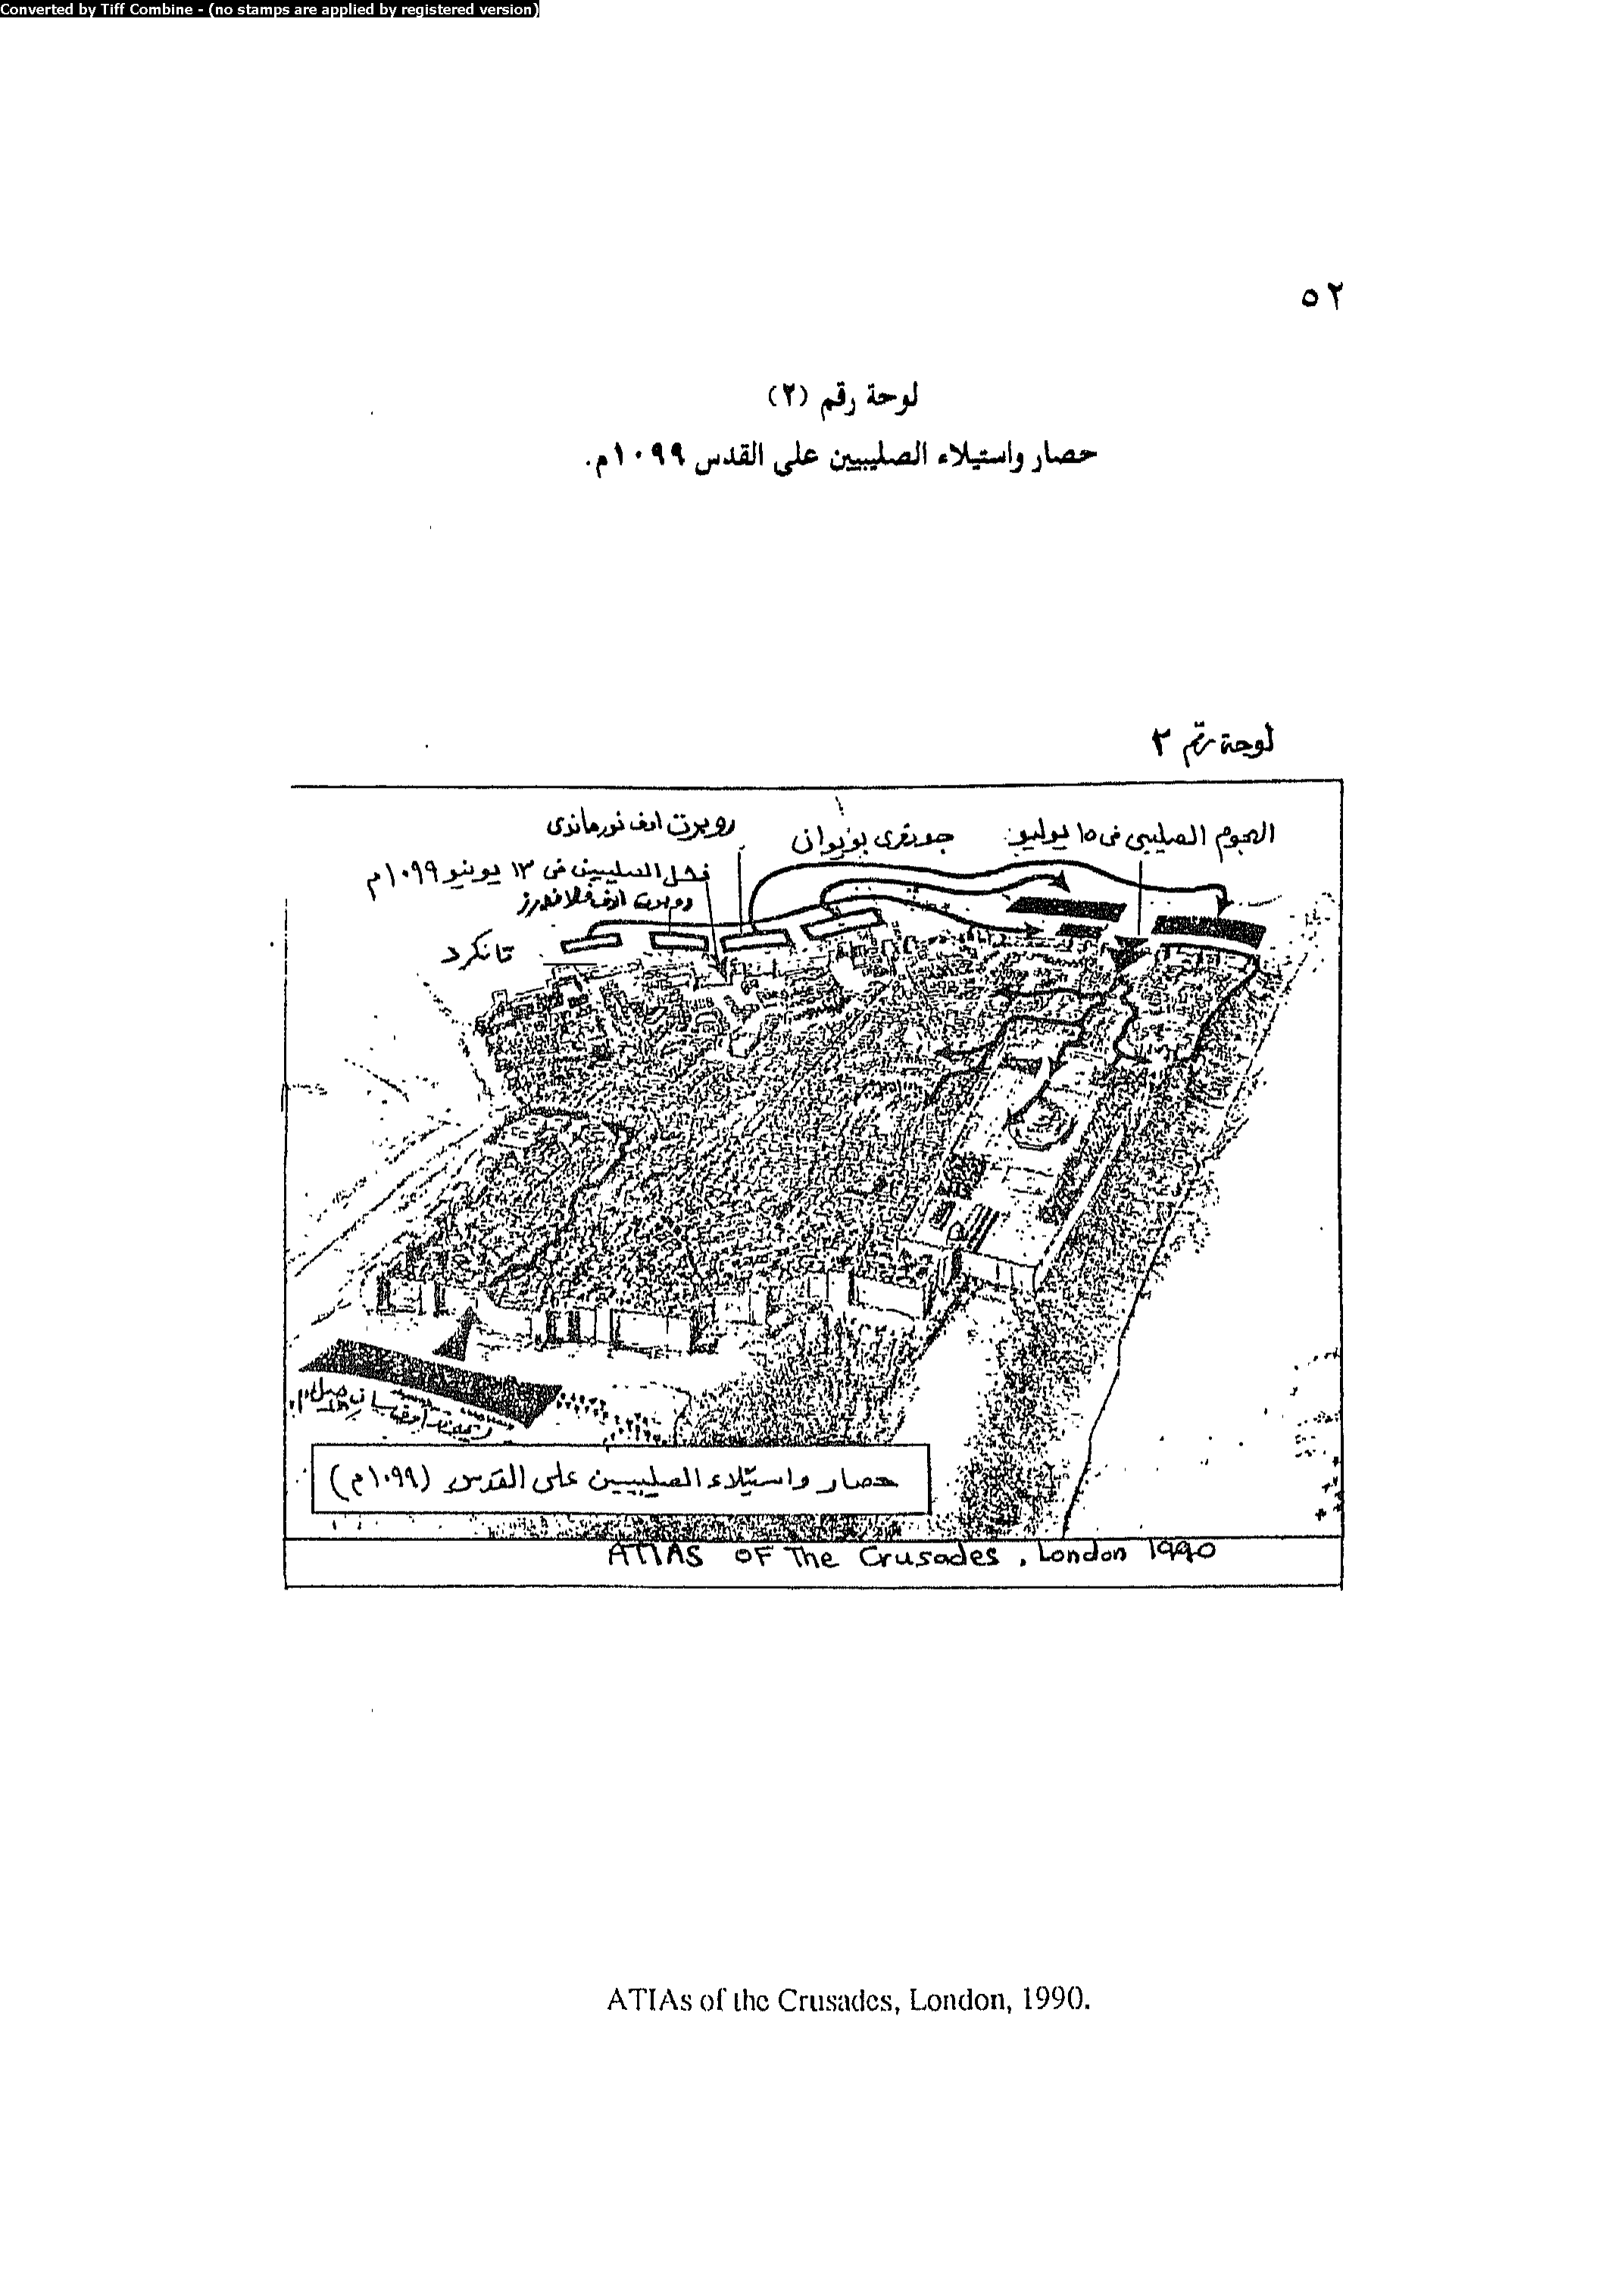 Converted by Tiff Combine - (no stamps are applied by registered version)
٥٢
لوحة رقم (٢)
حصار واستيلاء الصليبيين على القدس ١٠٩٩م.
لوحة رقم ٢
الهجوم الصليبى فى ١٥ يوليو
جودفرى بويوان
روبرت اوف نورماندى
فشل الصليبيين فى ١٣ يونيو ١٠٩٩م
روبرت اوف فلاندرز
تانكرد
حصار واستيلاء الصليبيين على القدس (١٠٩٩م)
ATIAS OF The Crusades , London 1990
ATIAs of the Crusades, London, 1990.